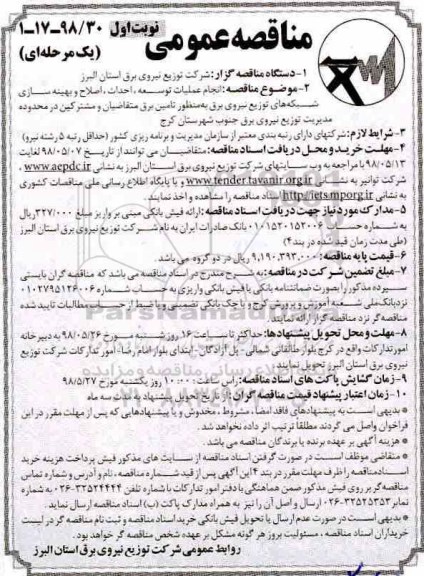 مناقصه عمومی
نوبت اول ۳۰/ ۹۸-۱۷-۱
(یک مرحله‌ای)
۱-دستگاه مناقصه گزار: شرکت توزیع نیروی برق استان البرز
۲-موضوع مناقصه: انجام عملیات توسعه ، احداث ، اصلاح و بهینه سازی
شبکه‌های توزیع نیروی برق به‌منظور تامین برق متقاضیان و مشترکین در محدوده
مدیریت توزیع نیروی برق جنوب شهرستان کرج
۳- شرایط لازم: شرکتهای دارای رتبه بندی معتبر از سازمان مدیریت و برنامه ریزی کشور (حداقل رتبه ۵ رشته نیرو)
۴- مهلت خرید و محل دریافت اسناد مناقصه: متقاضیان می توانند از تاریخ ۹۸/۰۵/۰۷ لغایت
۹۸/۰۵/۱۳ با مراجعه به وب سایتهای شرکت توزیع نیروی برق استان البرز به نشانی www.aepdc.ir ،
شرکت توانیر به نشانی www.tender.tavanir.org.ir و یا پایگاه اطلاع رسانی ملی مناقصات کشوری
به نشانی http://iets.mporg.ir اسناد مناقصه را مشاهده و اخذ نمایند.
۵- مدارک مورد نیاز جهت دریافت اسناد مناقصه: ارائه فیش بانکی مبنی بر واریز مبلغ ۳۲۷/۰۰۰ ریال
به شماره حساب ۰۱۰۱۵۲۰۱۵۲۰۰۶ بانک صادرات ایران به نام شرکت توزیع نیروی برق استان البرز
(طی مدت زمان قید شده در بند ۴)
۶- قیمت پایه مناقصه: ۹,۱۹۰,۳۹۳,۰۰۰ ریال در دو گروه می باشد.
۷- مبلغ تضمین شرکت در مناقصه: به شرح مندرج در اسناد مناقصه می باشد که مناقصه گران بایستی
سپرده مذکور را بصورت ضمانتنامه بانکی یا فیش بانکی واریزی به حساب شماره ۰۱۰۲۷۹۵۱۳۶۰۰۶
نزد بانک ملی شعبه آموزش و پرورش کرج و یا چک بانکی تضمینی و یا ضبط از حساب مطالبات تایید شده
مناقصه گر نزد مناقصه گزار ارائه نمایند.
۸- مهلت و محل تحویل پیشنهادها: حداکثر تا ساعت ۱۶ روز شنبه مورخ ۹۸/۰۵/۲۶ به دبیرخانه
امور تدارکات واقع در کرج بلوار طالقانی شمالی - پل آزادگان - ابتدای بلوار امام رضا- امور تدارکات شرکت توزیع
نیروی برق استان البرز تحویل نمایند.
۹- زمان گشایش پاکت های اسناد مناقصه: راس ساعت ۱۰:۰۰ روز یکشنبه مورخ ۹۸/۵/۲۷
۱۰- زمان اعتبار پیشنهاد قیمت مناقصه گران: از تاریخ تحویل پیشنهاد به مدت سه ماه
* بدیهی است به پیشنهادهای فاقد امضا ، مشروط ، مخدوش و یا پیشنهادهایی که پس از مهلت مقرر در این
فراخوان واصل می گردند مطلقا ترتیب اثر داده نخواهد شد.
* هزینه آگهی بر عهده برنده یا برندگان مناقصه می باشد.
* متقاضی موظف است در صورت گرفتن اسناد مناقصه از سایت های مذکور فیش پرداخت هزینه خرید
اسناد مناقصه را ظرف مهلت مقرر در بند ۴ این آگهی پس از قید شماره مناقصه، نام و آدرس و شماره تماس
مناقصه گر بر روی فیش مذکور ضمن هماهنگی با دفتر امور تدارکات با شماره تلفن ۳۲۵۲۴۴۴۴-۰۲۶ به شماره
نمابر ۳۲۵۲۵۲۵۳-۰۲۶ ارسال و اصل آن را نیز به همراه مدارک پاکت (ب) اسناد مناقصه ارسال نماید.
* بدیهی است در صورت عدم ارسال یا تحویل فیش بانکی خرید اسناد مناقصه و ثبت نام مناقصه گر در لیست
خریداران اسناد مناقصه ، مسئولیت بروز هر گونه مشکل بر عهده شخص مناقصه گر خواهد بود.
روابط عمومی شرکت توزیع نیروی برق استان البرز